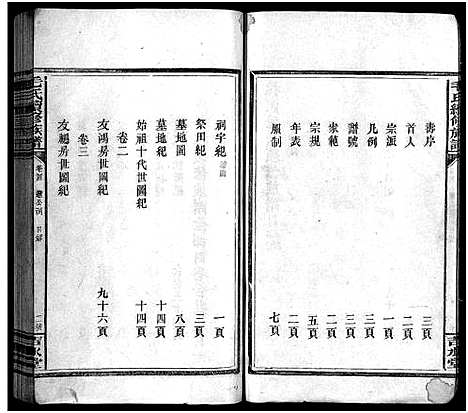 毛氏續修族譜
壽序 三頁
首人 二頁
宗派 一頁
凡例 一頁
譜號 二頁
家範 二頁
宗規 五頁
年表 二頁
服制 七頁
吉水堂
祠宇紀 一頁
祭田紀 三頁
墓地圖 八頁
墓地紀 十四頁
始祖十代世圖紀 十四頁
卷二
友鴻房世圖紀 九十六頁
卷三
友鵾房世圖紀
毛氏續修族譜
目錄
吉水堂